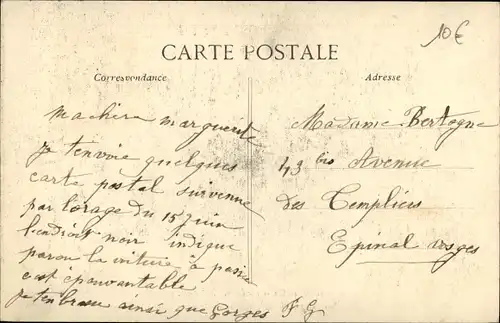 10€
CARTE POSTALE
Correspondance
Adresse
ma chère marguerite
Je tenvoie quelques
carte postal survenue
par lorage du 15 juin
lendroit noir indique
parou la voiture à passé
c'est épouvantable
Je tembrasse ainsi que Gorges F G
Madame Bertogne
43 bis Avenue
des Templiers
Epinal Vosges